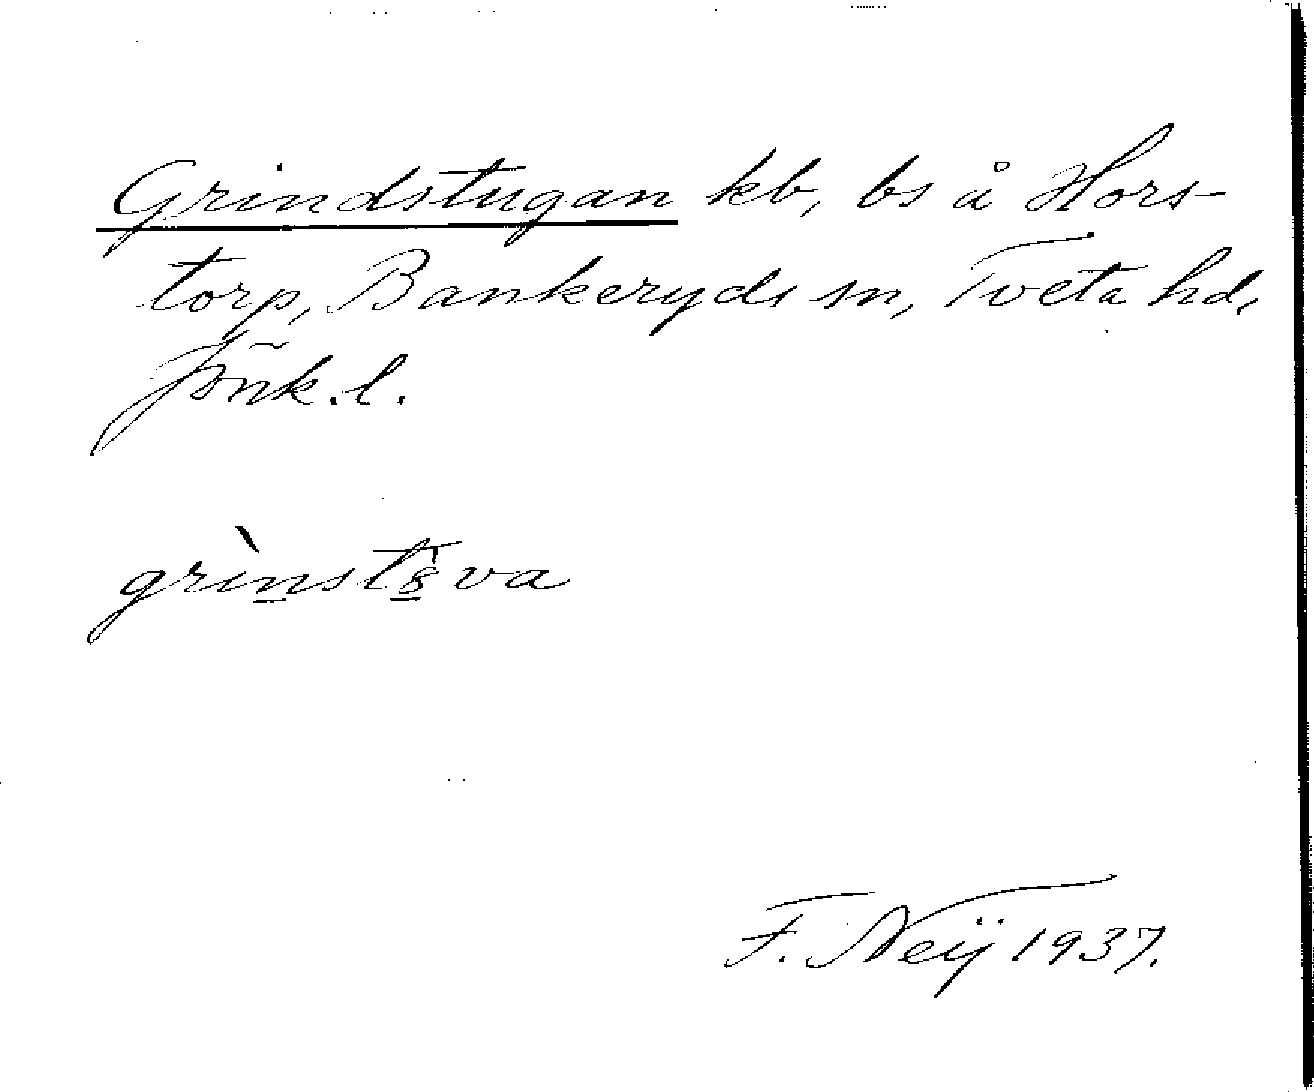 Grindstugan kb, bs å Hors-
torp, Bankeryds sn, Tveta hd,
Jönk. l.
F. Neij 1937.